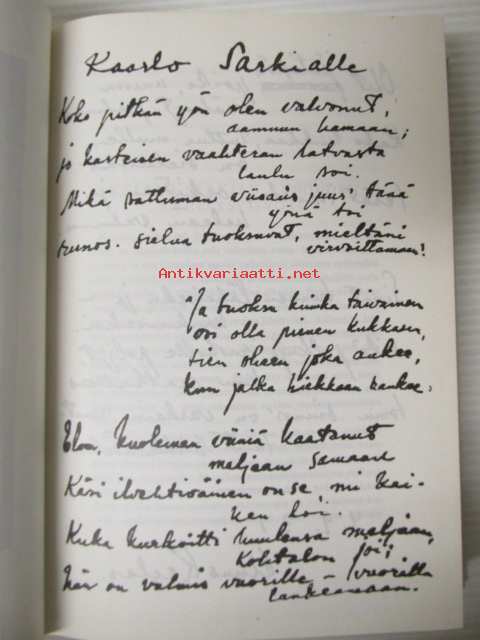 Kaarlo Sarkialle
Koko pitkän yön olen valvonut,
aamuun hamaan;
jo kasteisen vaahteran latvasta
laulu soi.
Mikä sattuman viisaus juur' tänä
yönä toi
runos. sielua tuoksuvat, mieltäni
virvoittamaan!
Antikvariaatti.net
"Ja tuoksu kuinka taivainen
voi olla pienen kukkasen,
tien oheen joka aukee,
kun jalka hiekkaan raukee.
Elon, kuoleman viiniä kaatanut
maljaan samaan
Käsi ilvehtiväinen on se, mi kai-
ken loi.
Kuka kurkoitti huulensa maljaan,
kohtalon joi;
hän on valmis vuorille – vuorilta
lankeamaan.